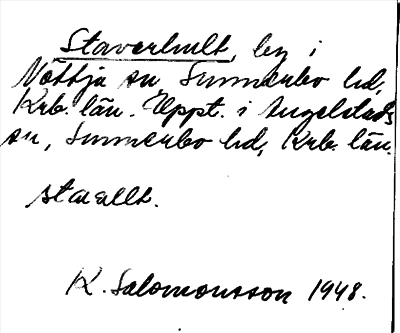 Staverhult, by i
Nöttja sn Sunnerbo hd,
Krb. län. Uppt. i Angelstads
sn, Sunnerbo hd, Krb. län.
K. Salomonsson 1948.